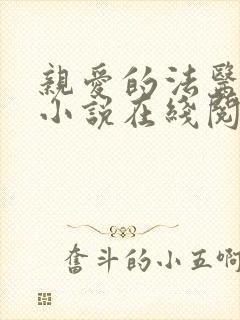 親愛的法醫
小說在綫閱
奮斗的小五啊